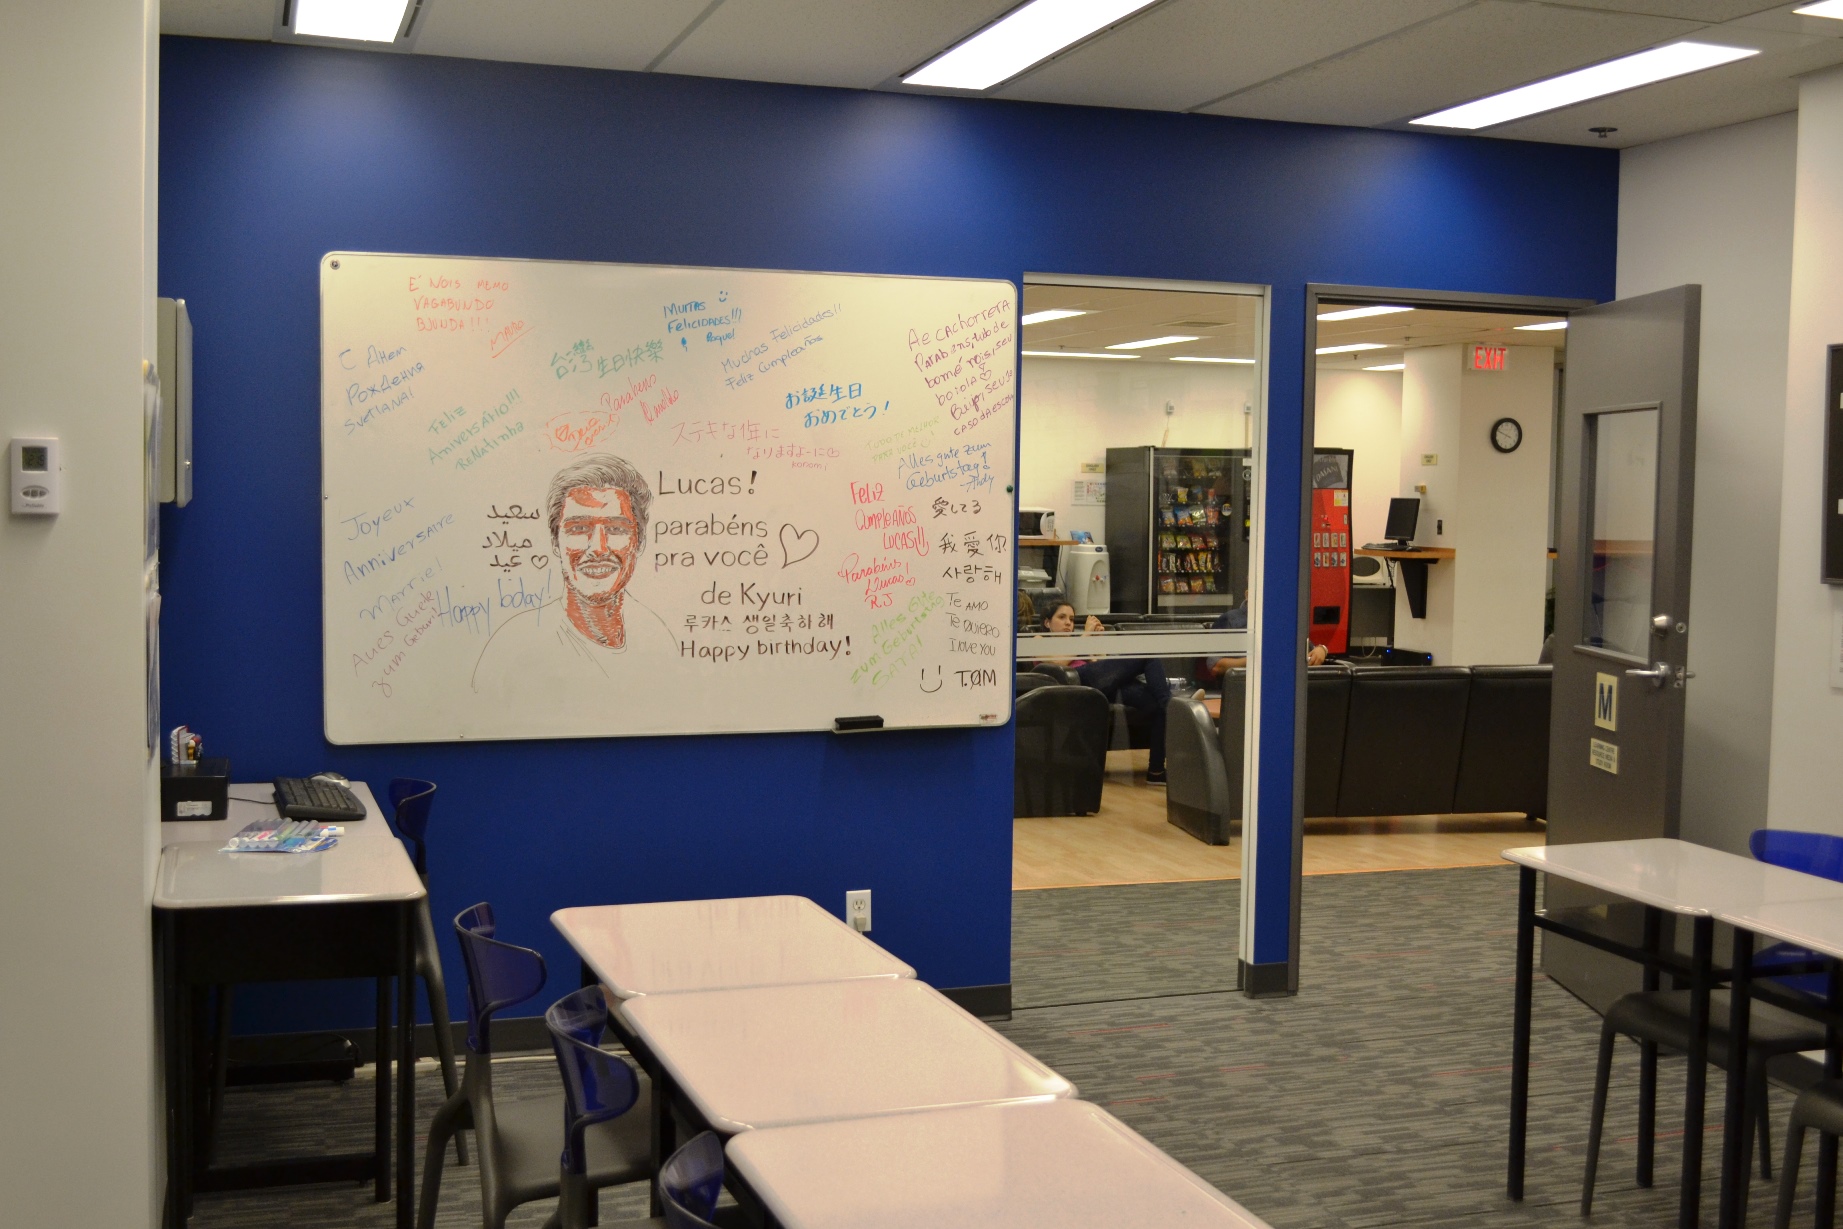 É NOIS MEMO
VAGABUNDO
BJUNDA!!!
MURO
С Днем
Рождения
SVETLANA!
FELIZ
ANIVERSÁRIO!!!
RENATINHA
台灣 生日快樂
MUITAS
FELICIDADES!!!
Raquel
Muchas Felicidades!!
Feliz Cumpleaños
Parabéns
お誕生日
おめでとう!
ステキな1年に
なりますよーに♡
AE CACHORRERA
PARABÉNS, tudo de
bom é nois, seu
boiola♡
Alles gute zum
Geburtstag!
-Andy
Joyeux
Anniversaire
Marrie!
Alles Gute
zum Geburt
سعيد
ميلاد
عيد ♡
Happy bday!
Lucas!
parabéns
pra você ♡
de Kyuri
루카스 생일축하해
Happy birthday!
FELIZ
CUMPLEAÑOS
LUCAS!!!
Parabéns
Lucas!
R.J
Alles Gute
zum Geburtstag
愛してる
我愛你
사랑해
Te AMO
Te QUIERO
I love YOU
T.ØM
EXIT
M